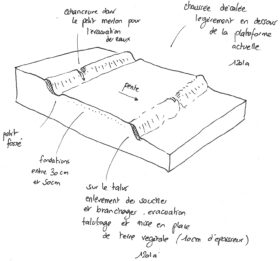 échancrure dans
le petit merlon pour
l'évacuation
des eaux
chaussée décalée
légèrement en dessous
de la plateforme
actuelle.
pente
petit
fossé
fondations
entre 30 cm
et 50cm
sur le talus
enlèvement de souches
et branchages. évacuation
talutage et mise en place
de terre végétale (10cm d'épaisseur)